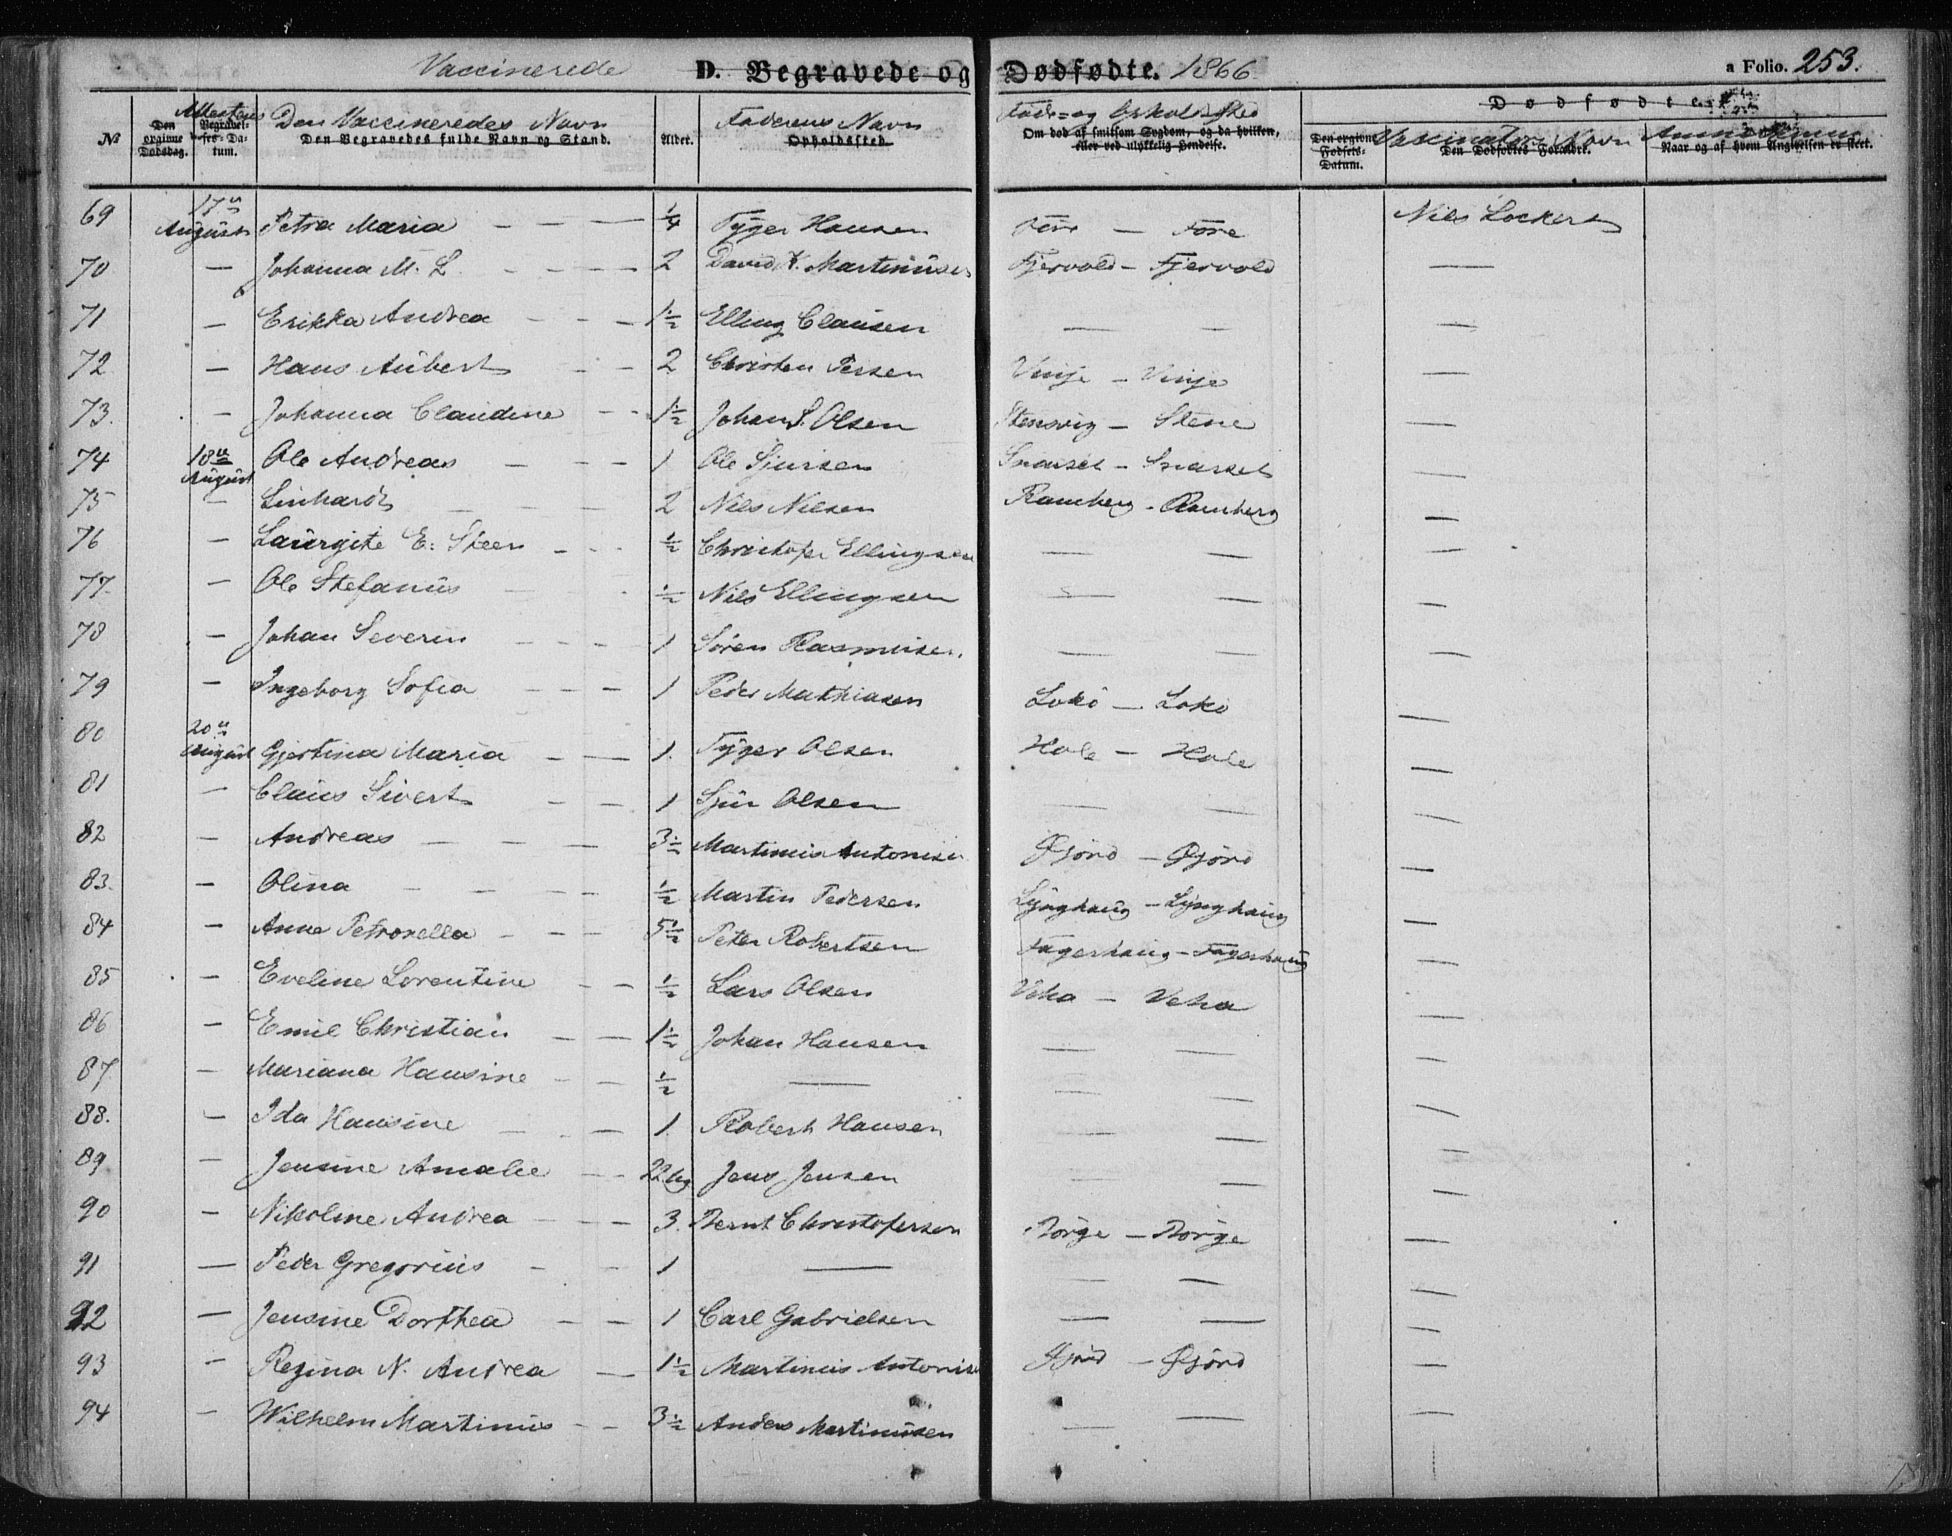 Vaccinerede D. Begravede og Dødfødte. 1866 a Folio. 253.
Attestens Den Vaccineredes Navn Faderens Navn Føde- og Opholdssted Dødfødte.
№ Den egentlige Dødsdag. Begravelses-Datum. Den Begravedes fulde Navn og Stand. Alder. Opholdssted. Om død af smitsom Sygdom, og da hvilken, eller ved ulykkelig Hendelse. Den egentlige Fødsels-Datum. Den Dødfødtes Forældre. Naar og af hvem Anmeldelsen er skeet.
Vaccinators Navn
69 17de August Petra Maria — — — 1/4 Tyger Hansen Före — Före Nils Lockert
70 — Johanna M. L. — — — 2 David K. Martinusen Fjervold — Fjervold —
71 — Erikka Andrea — — — 1 1/2 Elling Clausen — — —
72 — Hans Aübert — — 2 Christen Persen Vinje — Vinje —
73. — Johanna Claudine — — 1 1/2 Johan S. Olsen Stensvig — Stene —
74 18de August Ole Andreas — — — 1 Ole Sjursen Snarset — Snarset —
75 — Linhardt — — — 2 Nils Nilsen Ramberg — Ramberg —
76 — Laürgite E. Steen — — 1/2 Christofer Ellingsen — — —
77. — Ole Stefanüs — 1/2 Nils Ellingsen — — —
78 — Johan Severin — — — 1 Sören Rasmusen. — — —
79 — Ingeborg Sofia — — — 1 Peder Mathiasen Lokö — Lokö —
80 20de August Gjertina Maria — — 1. Tyger Olsen Hole — Hole —
81 — Claüs Sivert — — 1 Sjür Olsen — — —
82 — Andreas — — — 3 1/2 Martinus Antonisen Øjörd — Øjörd —
83. — Olina — — — — 1/2 Martin Pedersen Lynghaüg — Lynghaüg —
84 — Anne Petronella — — — 5 1/2 Peter Robertsen Fagerhaug — Fagerhaug —
85 — Eveline Lorentine — — 1/2 Lars Olsen Veha — Veha —
86 — Emil Christian — — 1 1/2 Johan Hansen — — —
87 — Mariana Hansine — — 1/2 — — — —
88. — Ida Hansine — — 1. Robert Hansen — — —
89 — Jensine Amalie — — 22 Ug Jens Jensen — — —
90 — Nikoline Andrea — — — 3. Bernt Christofersen Börge — Börge —
91 — Peder Gregorius — — 1 — — — —
92 — Jensine Dorthea — — 1 Carl Gabrielsen — — —
93 — Regina N. Andrea — 1 1/2 Martinus Antonisen Øjörd — Øjörd —
94 — Wilhelm Martinus — — 3 1/2 Anders Martinusen — — —